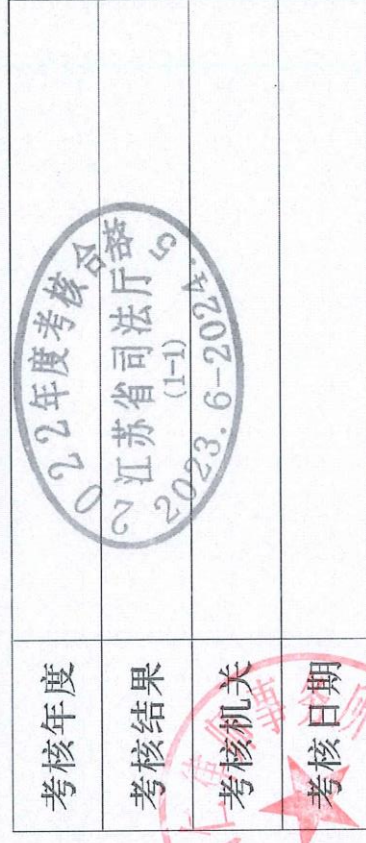 考核年度
考核结果
考核机关
考核日期
2022年度考核合格
江苏省司法厅
(1-1)
2023.6-2024.5
律师事务所